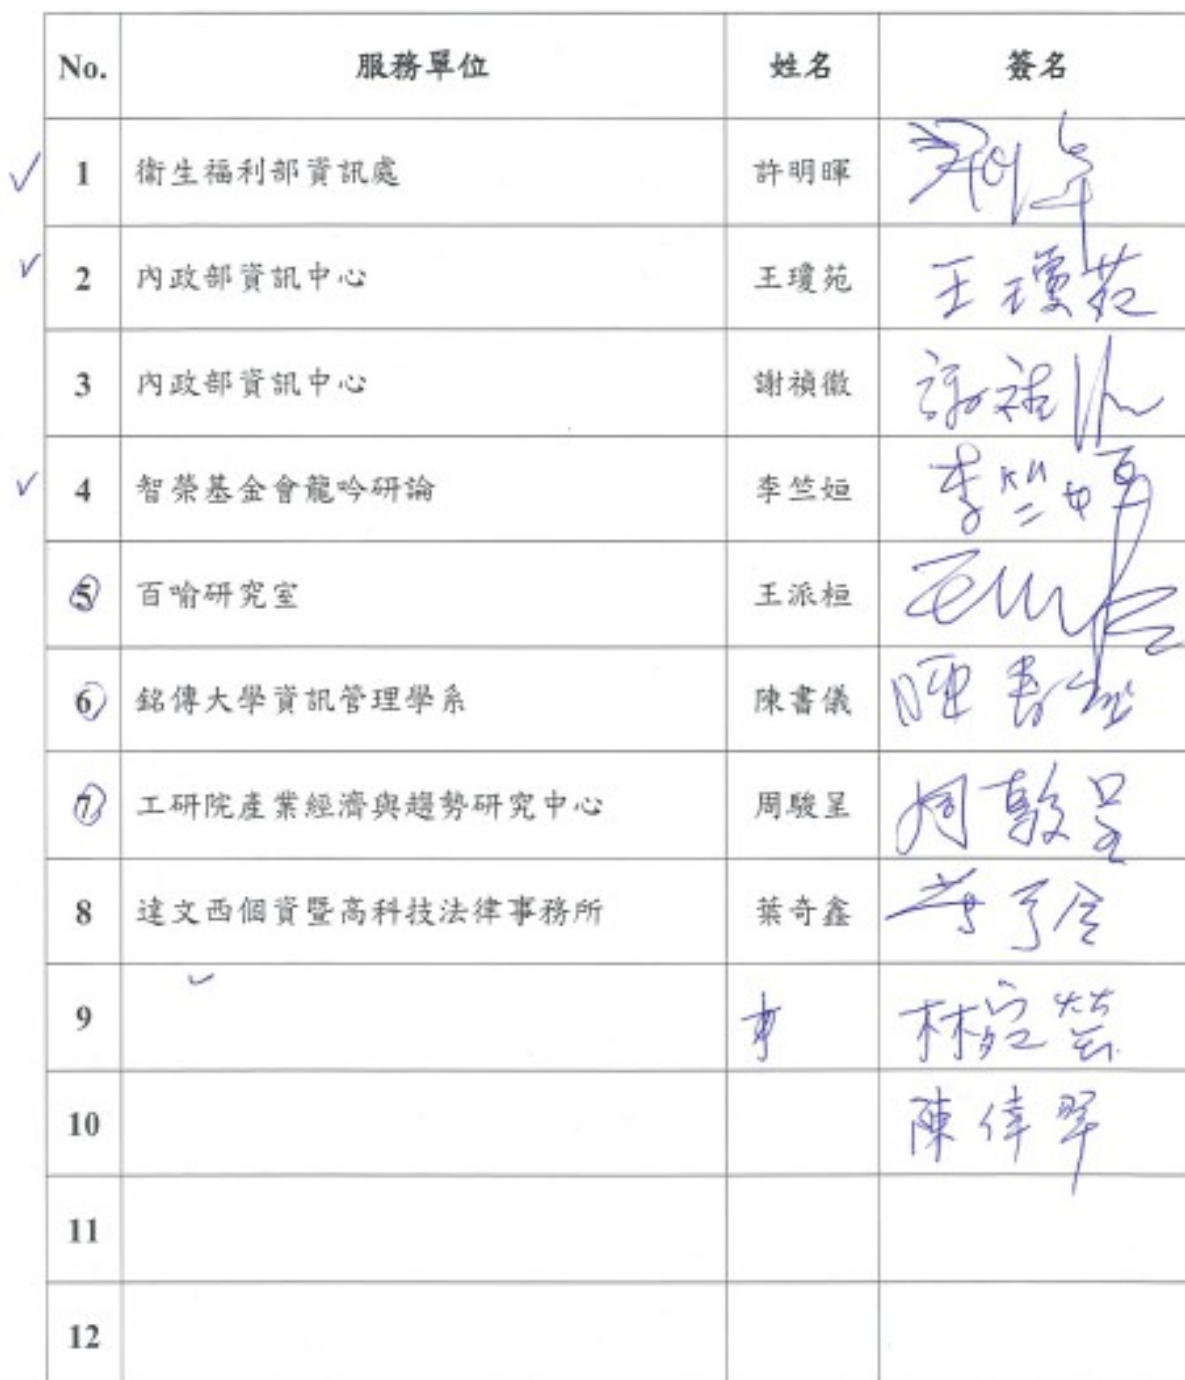 No. 服務單位 姓名 簽名
1 衛生福利部資訊處 許明暉
2 內政部資訊中心 王瓊苑 王瓊苑
3 內政部資訊中心 謝禎徽
4 智榮基金會龍吟研論 李竺姮 李竺姮
5 百喻研究室 王派桓
6 銘傳大學資訊管理學系 陳書儀 陳書儀
7 工研院產業經濟與趨勢研究中心 周駿呈 周駿呈
8 達文西個資暨高科技法律事務所 葉奇鑫
9
10 陳偉翠
11
12